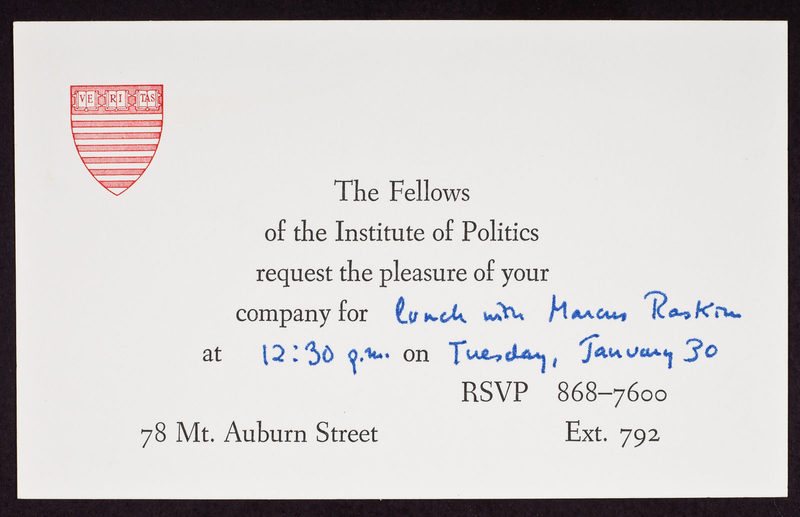 VE RI TAS
The Fellows
of the Institute of Politics
request the pleasure of your
company for lunch with Marcus Raskin
at 12:30 p.m. on Tuesday, January 30
RSVP 868–7600
78 Mt. Auburn Street Ext. 792